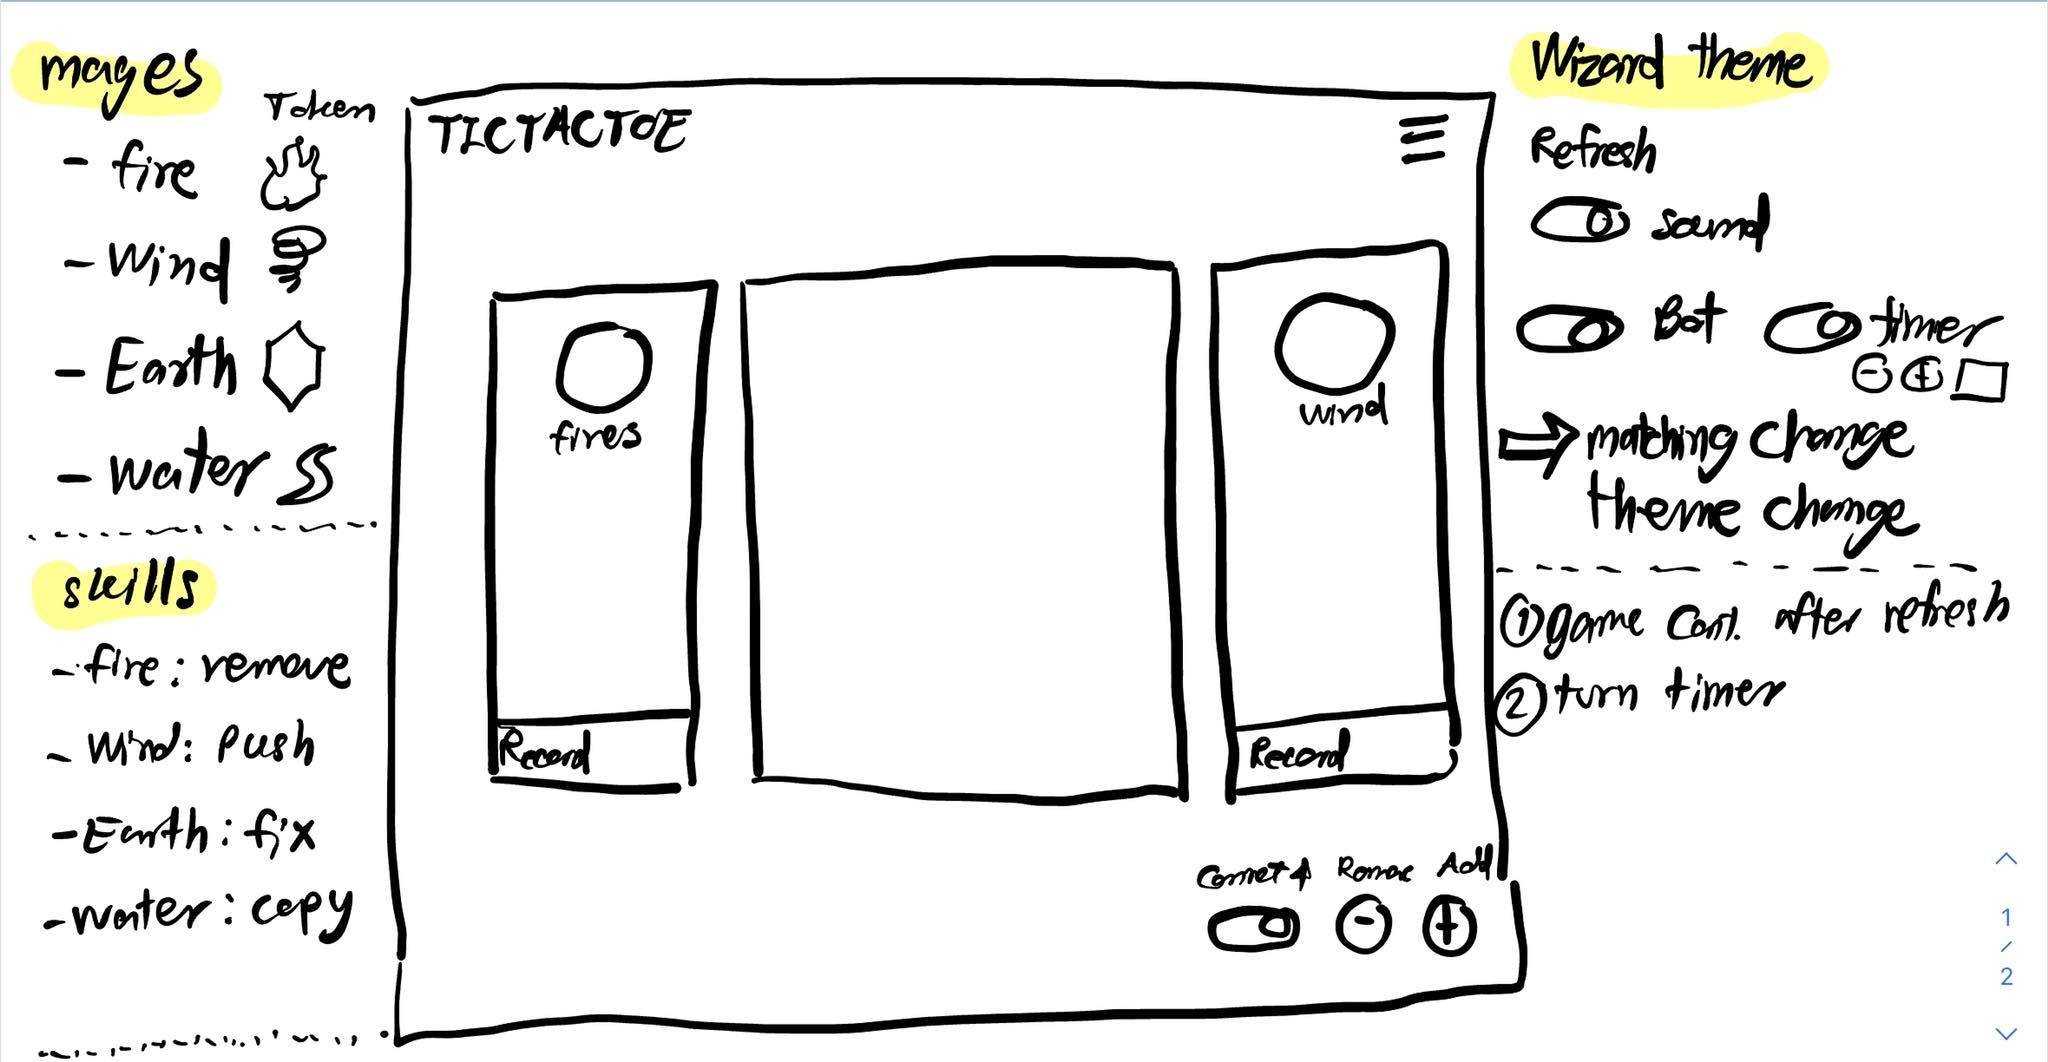 mages
Token
- fire
- Wind
- Earth
- water
skills
- fire : remove
- Wind : Push
- Earth : fix
- water : copy
TICTACTOE
fires
wind
Record
Record
Add
Wizard theme
Refresh
sound
Bot
timer
matching change
theme change
① game cont. after refresh
② turn timer
1
/
2